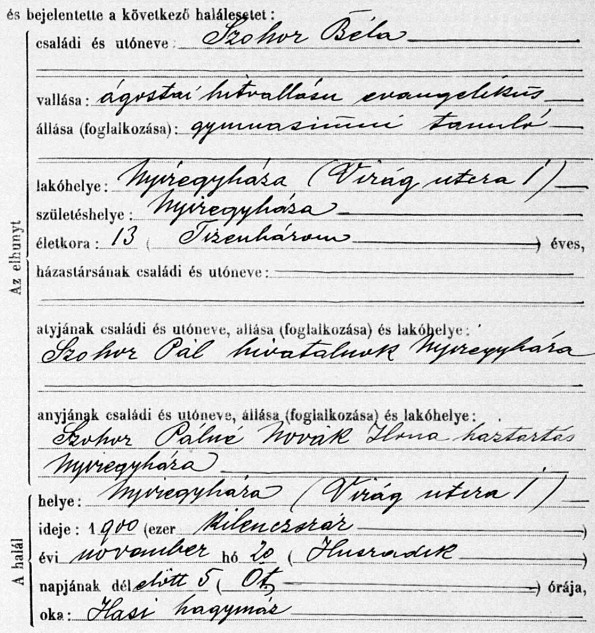 és bejelentette a következő halálesetet:
családi és utóneve: Szohor Béla
vallása: ágostai hitvallásu evangelikus
állása (foglalkozása): gymnasiumi tanuló
Az elhunyt
lakóhelye: Nyiregyháza (Virág utcza 1)
születéshelye: Nyiregyháza
életkora: 13 (Tizenhárom) éves,
házastársának családi és utóneve:
atyjának családi és utóneve, állása (foglalkozása) és lakóhelye:
Szohor Pál hivatalnok Nyiregyháza
anyjának családi és utóneve, állása (foglalkozása) és lakóhelye:
Szohor Pálné Novák Ilona háztartás
Nyiregyháza
A halál
helye: Nyiregyháza (Virág utcza 1)
ideje: 1900 (ezer kilenczszáz)
évi november hó 20 (Huszadik)
napjának délelőtt 5 (Öt) órája,
oka: Hasi hagymáz